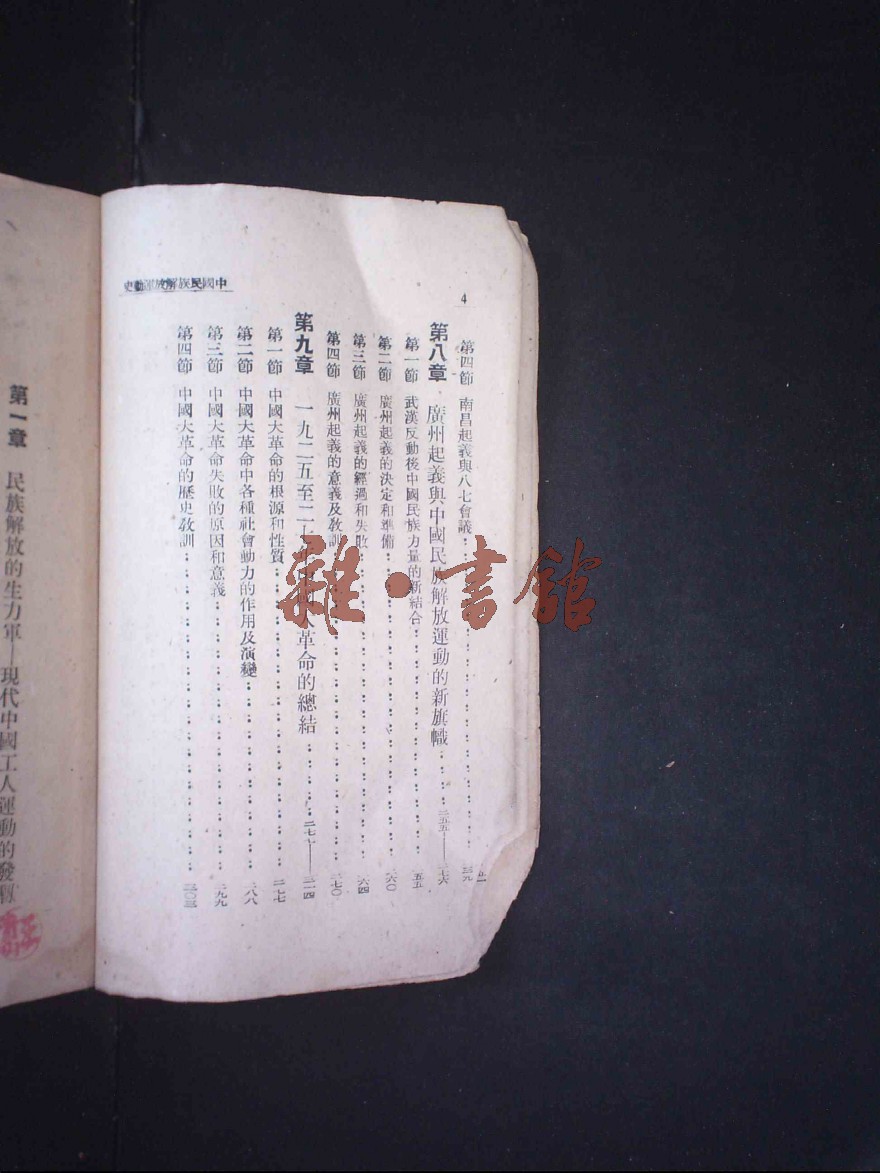 4
中國民族解放運動史
第四節 南昌起義與八七會議
第八章 廣州起義與中國民族解放運動的新旗幟 二五五——二七六
第一節 武漢反動後中國民族力量的新結合 二五五
第二節 廣州起義的決定和準備 二六〇
第三節 廣州起義的經過和失敗 二六四
第四節 廣州起義的意義及教訓 二七〇
第九章 一九二五至二七年中國大革命的總結 二七七——三一四
第一節 中國大革命的根源和性質 二七七
第二節 中國大革命中各種社會動力的作用及演變 二八八
第三節 中國大革命失敗的原因和意義 二九九
第四節 中國大革命的歷史教訓 三〇三
第一章 民族解放的生力軍——現代中國工人運動的發
雜·書館